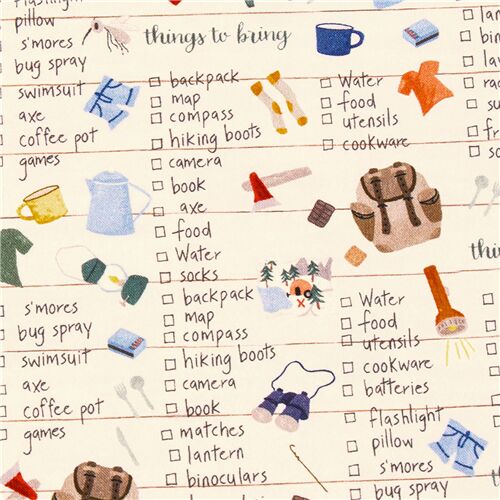 flashlight
pillow
s'mores
bug spray
swimsuit
axe
coffee pot
games
s'mores
bug spray
swimsuit
axe
coffee pot
games
things to bring
backpack
map
compass
hiking boots
camera
book
axe
food
Water
socks
backpack
map
compass
hiking boots
camera
book
matches
lantern
binoculars
Water
food
utensils
cookware
Water
food
utensils
cookware
batteries
flashlight
pillow
s'mores
bug spray